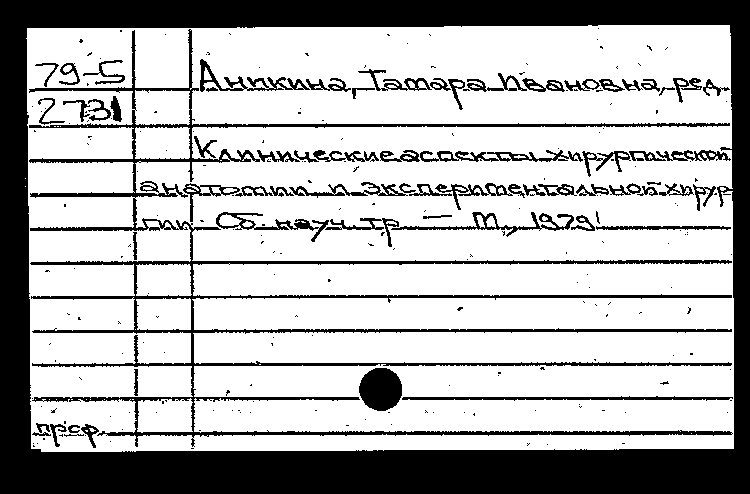 79-5
2731
Аникина, Тамара Ивановна, ред.
Клинические аспекты хирургической
анатомии и экспериментальной хирур-
гии. Сб. науч. тр. — М., 1979.
проф.